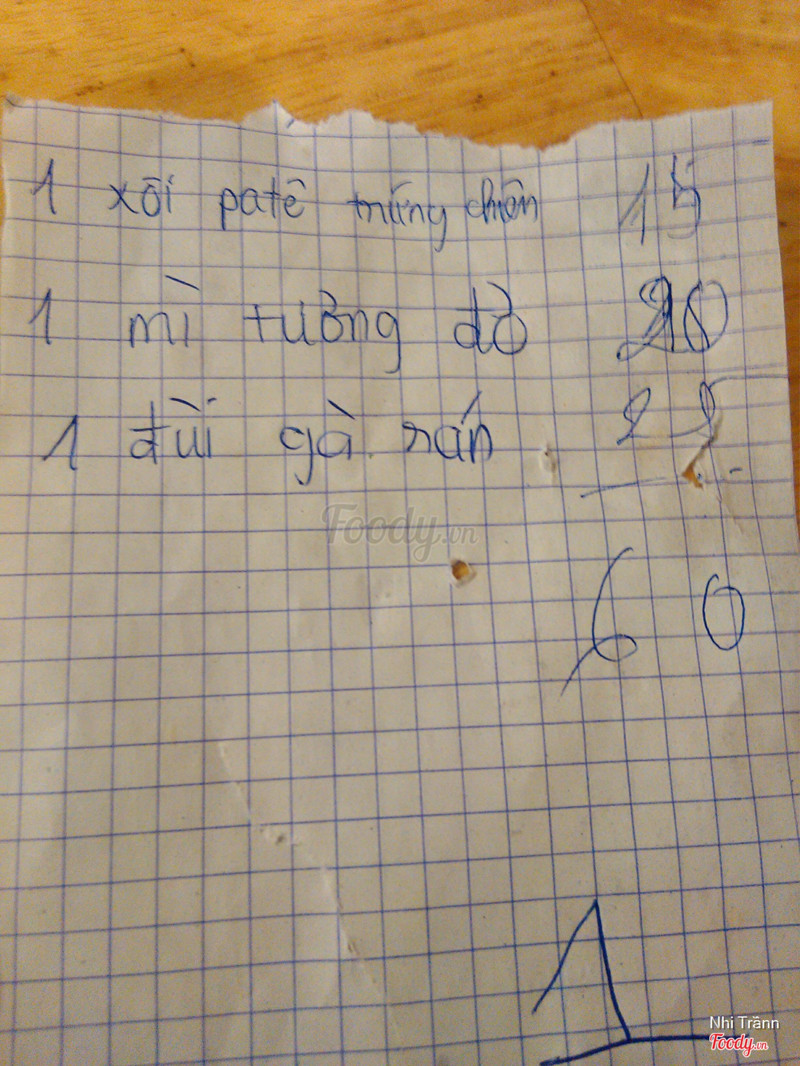 1 xôi patê trứng chiên 15
1 mì tương đỏ 20
1 đùi gà rán
Foody.vn
60
1
Nhi Trầnn
Foody.vn